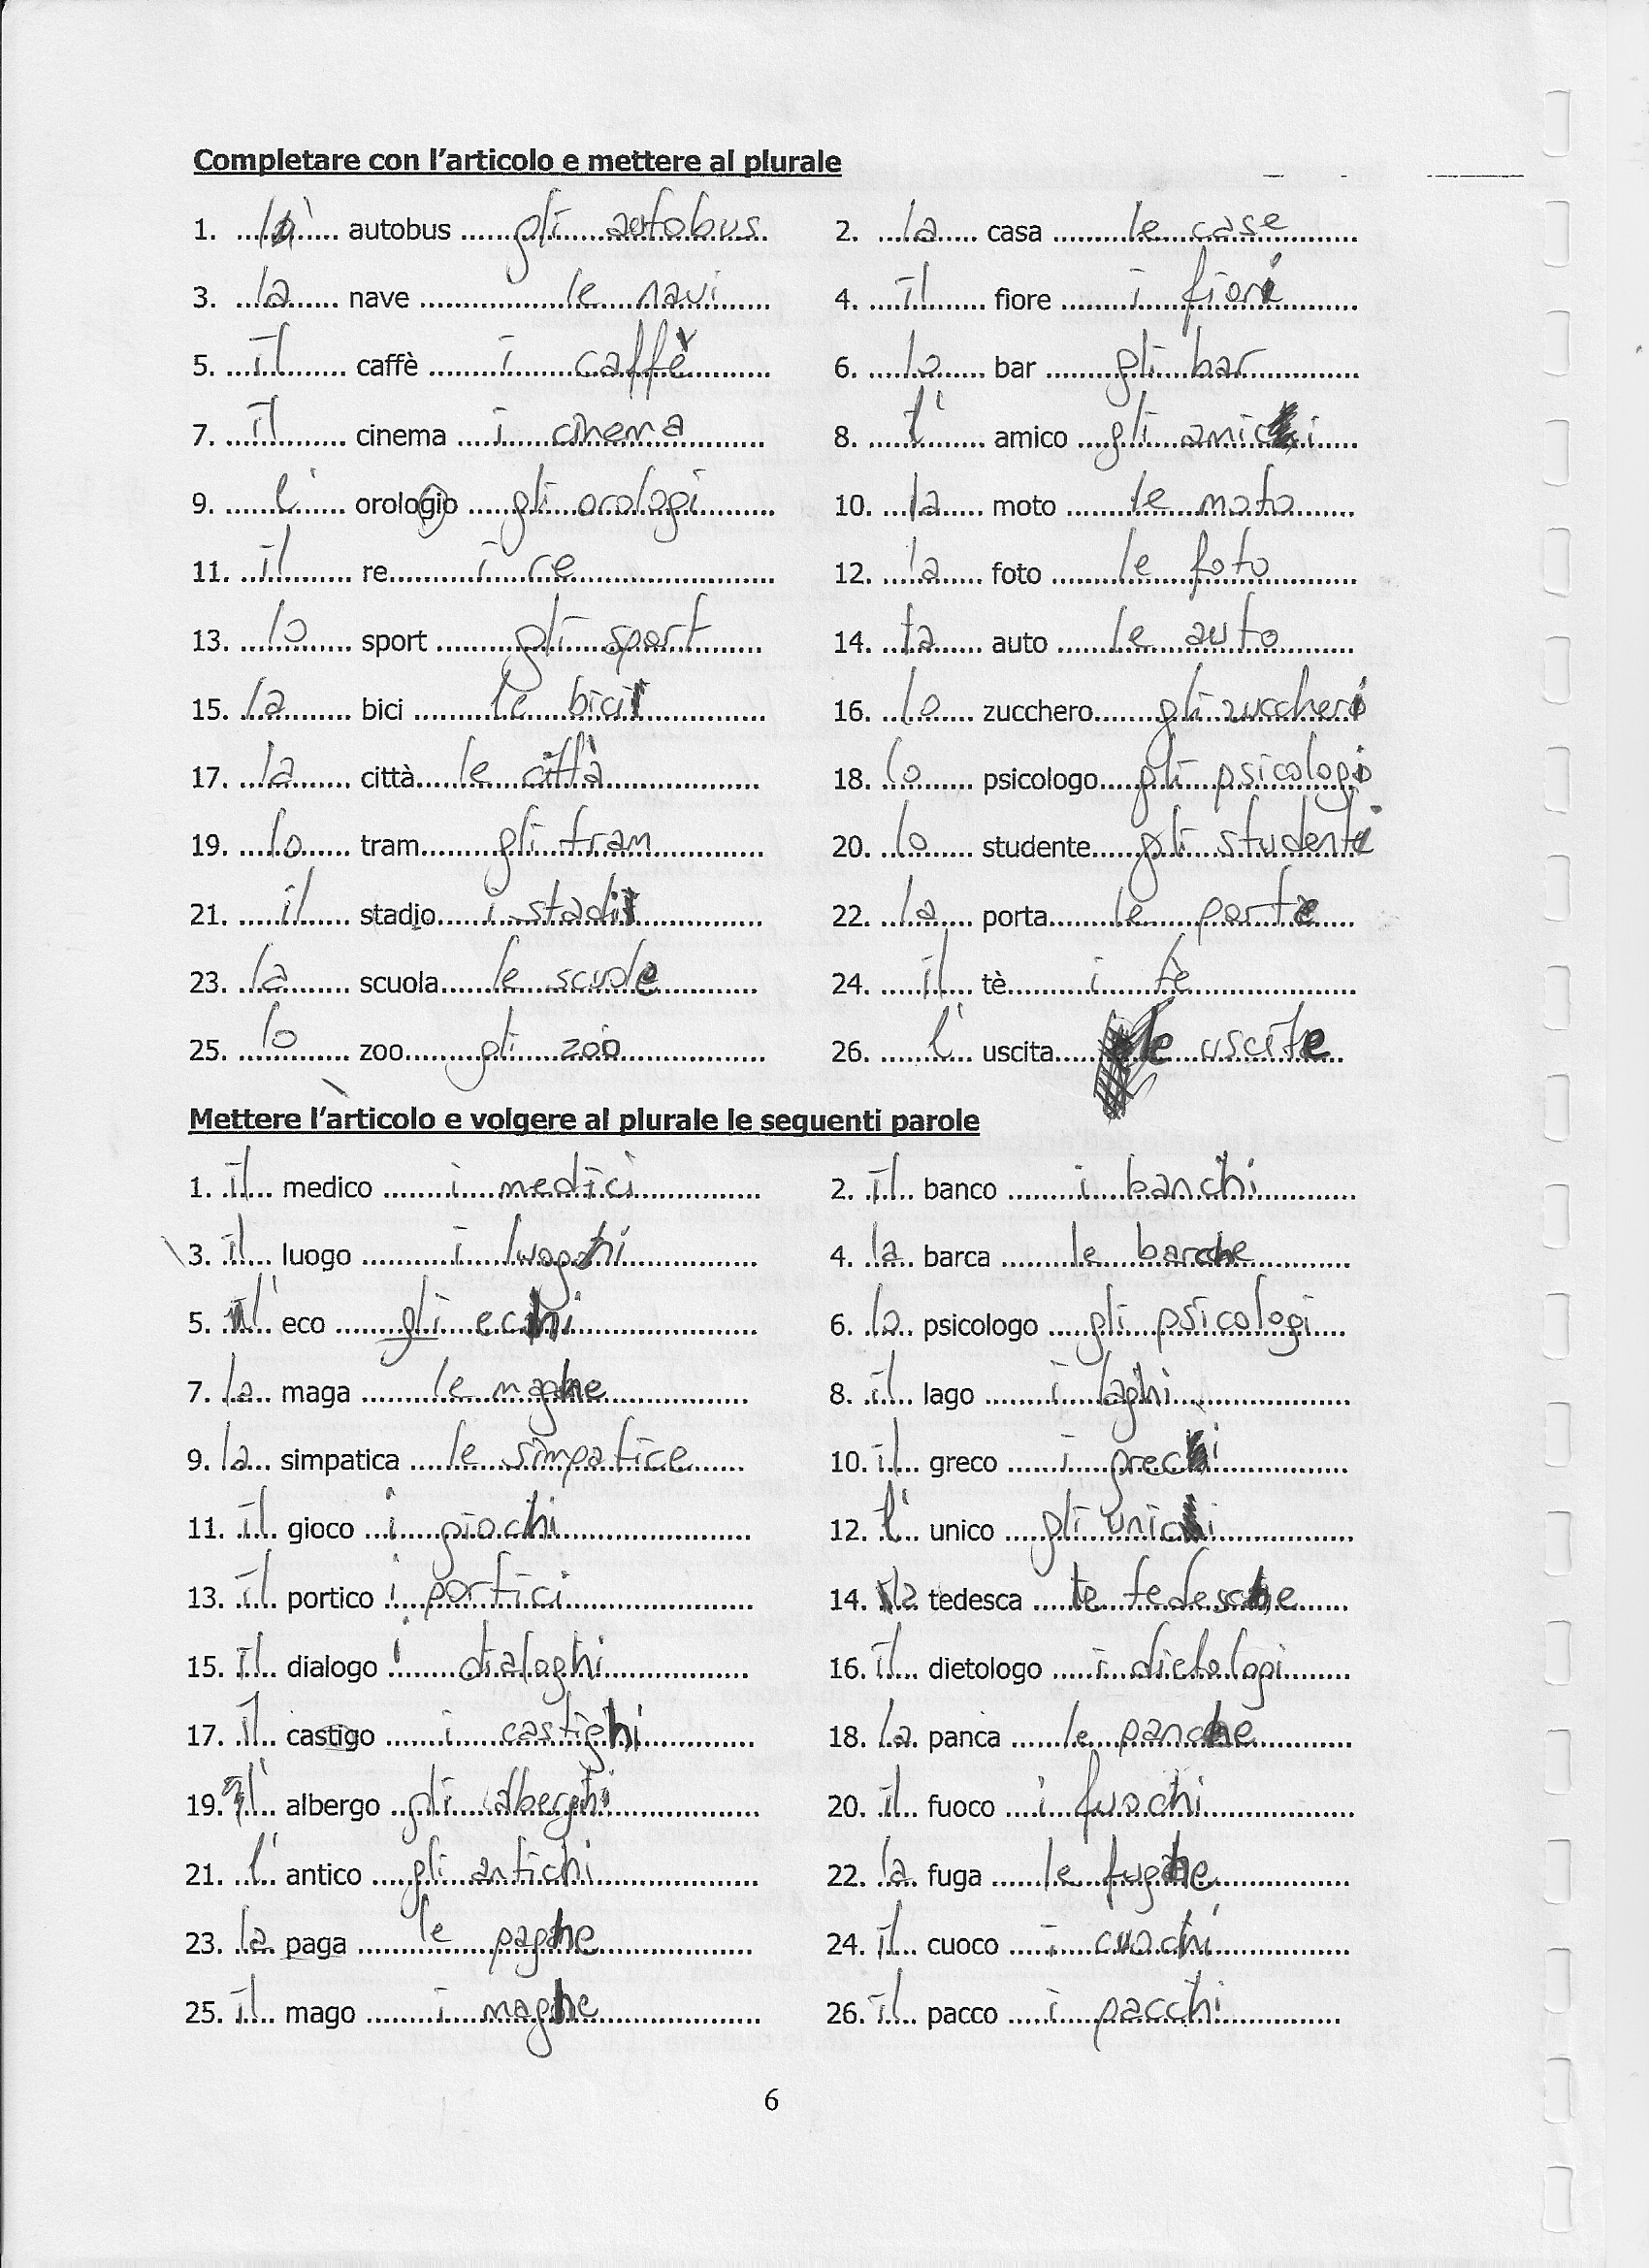 Completare con l'articolo e mettere al plurale
1. ... l' ... autobus ... gli autobus ... 2. ... la ... casa ... le case ...
3. ... la ... nave ... le navi ... 4. ... il ... fiore ... i fiori ...
5. ... il ... caffè ... i caffè ... 6. ... lo ... bar ... gli bar ...
7. ... il ... cinema ... i cinema ... 8. ... l' ... amico ... gli amici ...
9. ... l' ... orologio ... gli orologi ... 10. ... la ... moto ... le moto ...
11. ... il ... re ... i re ... 12. ... la ... foto ... le foto ...
13. ... lo ... sport ... gli sport ... 14. ... la ... auto ... le auto ...
15. ... la ... bici ... le bici ... 16. ... lo ... zucchero ... gli zuccheri ...
17. ... la ... città ... le città ... 18. ... lo ... psicologo ... gli psicologi ...
19. ... lo ... tram ... gli tram ... 20. ... lo ... studente ... gli studenti ...
21. ... il ... stadio ... i stadi ... 22. ... la ... porta ... le porte ...
23. ... la ... scuola ... le scuole ... 24. ... il ... tè ... i tè ...
25. ... lo ... zoo ... gli zoo ... 26. ... l' ... uscita ... le uscite ...
Mettere l'articolo e volgere al plurale le seguenti parole
1. il medico ... i medici ... 2. il banco ... i banchi ...
3. il luogo ... i luoghi ... 4. la barca ... le barche ...
5. l' eco ... gli echi ... 6. lo psicologo ... gli psicologi ...
7. la maga ... le maghe ... 8. il lago ... i laghi ...
9. la simpatica ... le simpatice ... 10. il greco ... i greci ...
11. il gioco ... i giochi ... 12. l' unico ... gli unici ...
13. il portico ... i portici ... 14. la tedesca ... le tedesche ...
15. il dialogo ... i dialoghi ... 16. il dietologo ... i dietologi ...
17. il castigo ... i castighi ... 18. la panca ... le panche ...
19. l' albergo ... gli alberghi ... 20. il fuoco ... i fuochi ...
21. l' antico ... gli antichi ... 22. la fuga ... le fughe ...
23. la paga ... le paghe ... 24. il cuoco ... i cuochi ...
25. il mago ... i maghe ... 26. il pacco ... i pacchi ...
6